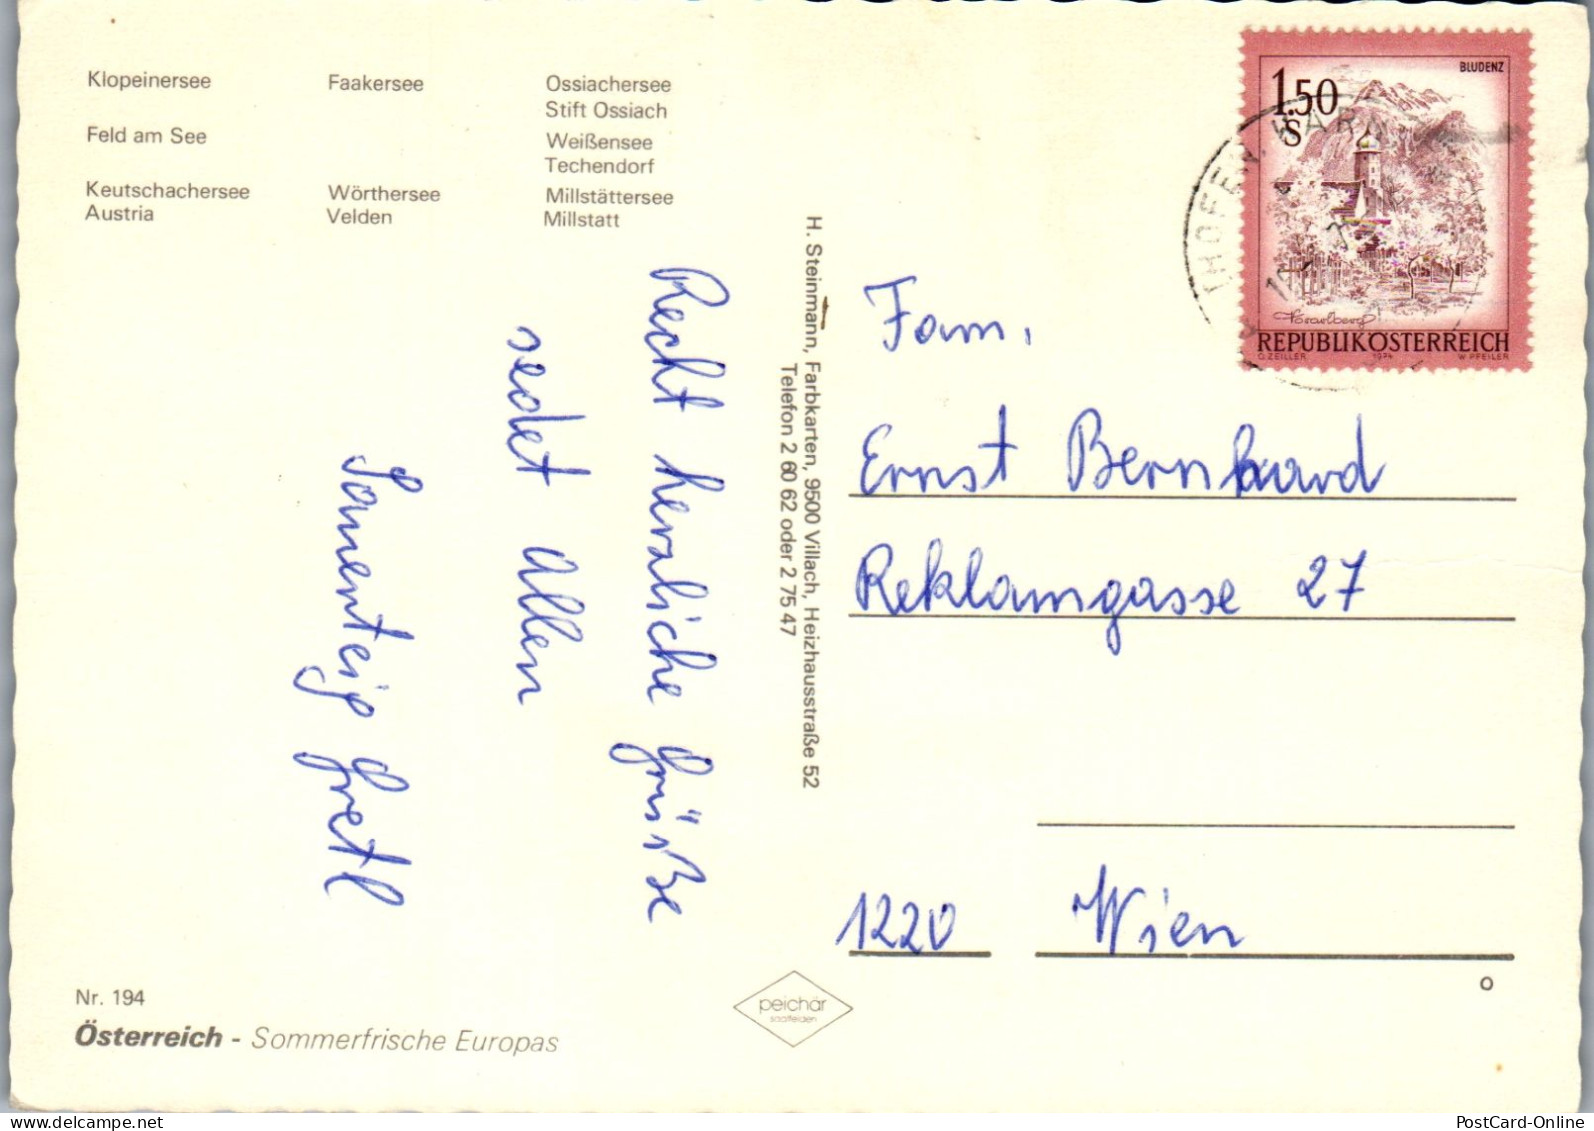 Klopeinersee
Faakersee
Ossiachersee
Stift Ossiach
Feld am See
Weißensee
Techendorf
Keutschachersee
Austria
Wörthersee
Velden
Millstättersee
Millstatt
Recht herzliche Grüße
sedet Allen
Gretl
H. Steinmann, Farbkarten, 9500 Villach, Heizhausstraße 52
Telefon 2 60 62 oder 2 75 47
BLUDENZ
1.50
S
Vorarlberg
REPUBLIK ÖSTERREICH
O. ZEILLER 1974 W. PFEILER
Fam.
Ernst Bernhard
Reklamgasse 27
1220 Wien
Nr. 194
Österreich - Sommerfrische Europas
peichär
saalfelden
PostCard-Online